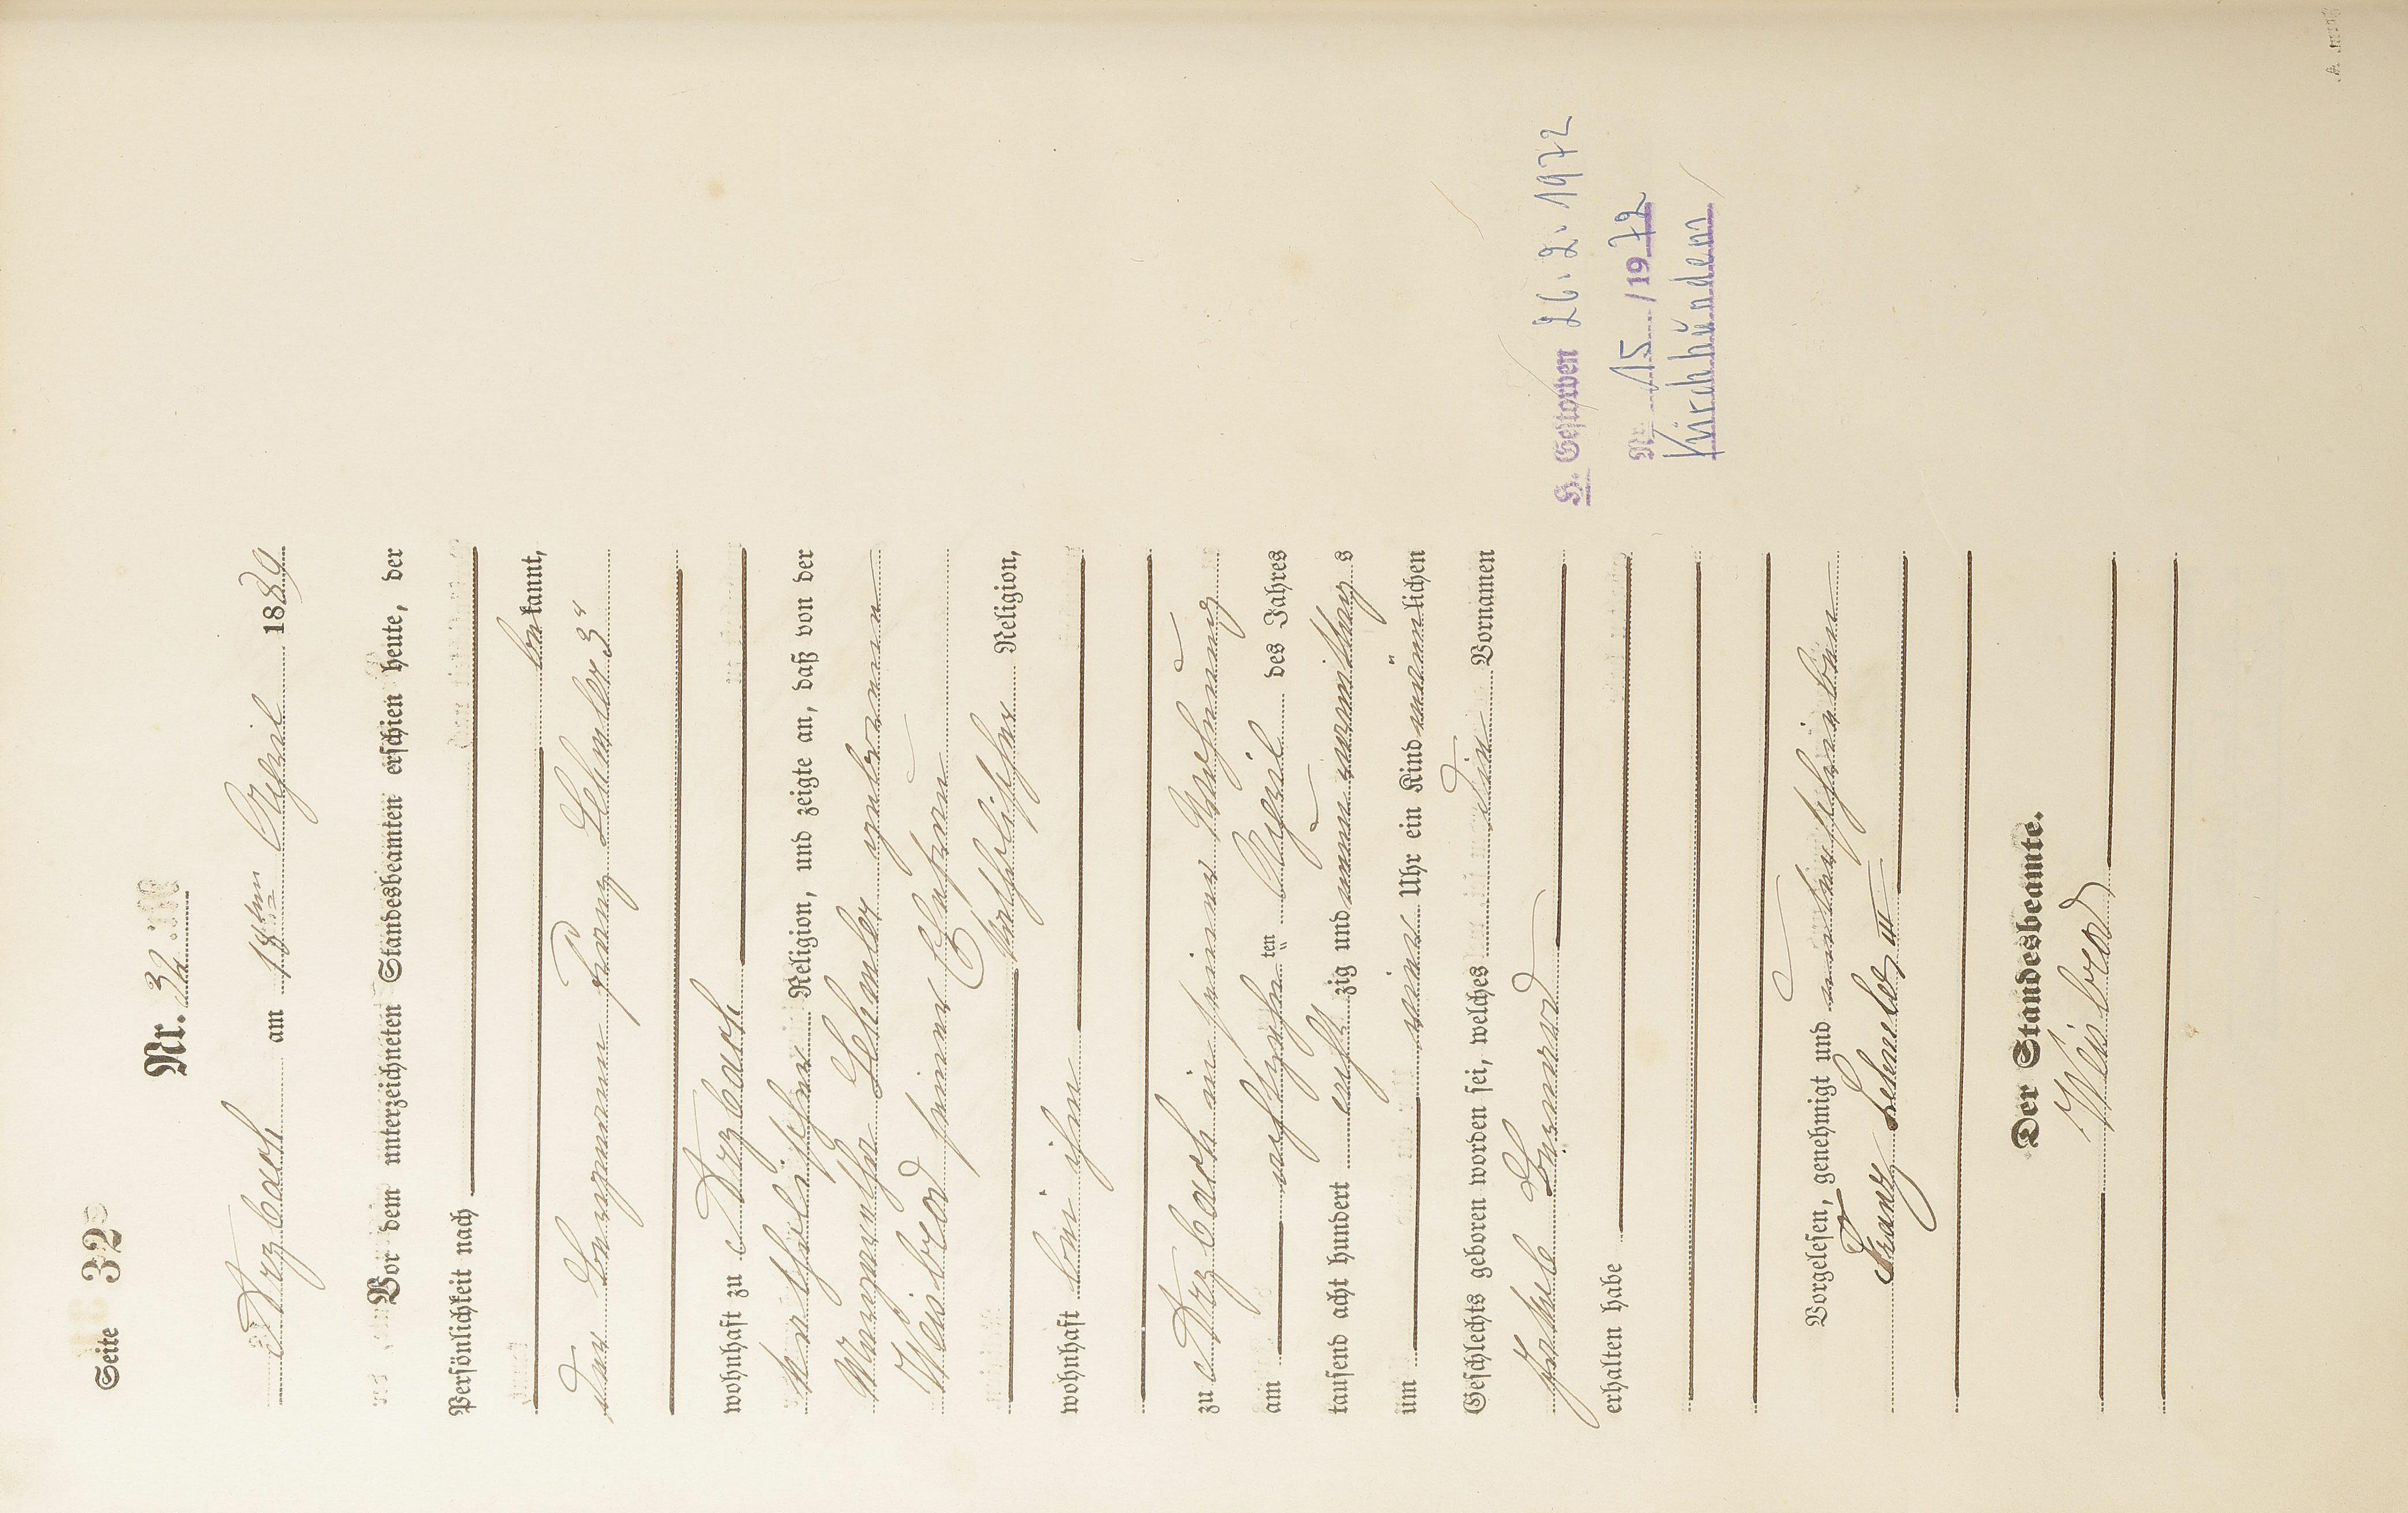 Seite 32
Nr. 32
Arzbach am 18ten April 1889
Vor dem unterzeichneten Standesbeamten erschien heute, der
Persönlichkeit nach
bekannt,
der Bergmann Franz Lehmler 3r
wohnhaft zu Arzbach
katholischer Religion, und zeigte an, daß von der
Margaretha Lehmler geborenen
Weisbrod seiner Ehefrau
katholischer Religion,
wohnhaft bei ihm
zu Arzbach in seiner Wohnung
am achtzehnten April des Jahres
tausend acht hundert achtzig und neun vormittags
um eine Uhr ein Kind männlichen
Geschlechts geboren worden sei, welches die Vornamen
Jakob Bernard
erhalten habe
Vorgelesen, genehmigt und unterschrieben
Franz Lehmler III
Der Standesbeamte.
Weisbrod
H. Gestorben 26.2.1972
Nr. 15/1972
Kirchhundem